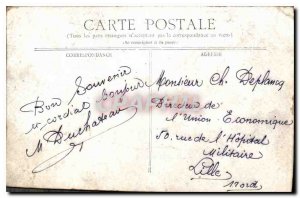 CARTE POSTALE
(Tous les pays étrangers n'acceptent pas la correspondance au verso)
CORRESPONDANCE
ADRESSE
Bon Souvenir
et cordial bonjour
M Duchateau
Monsieur Ch. Deplancq
Directeur de
l'Union Économique
50, rue de l'Hôpital
Militaire
Lille
Nord